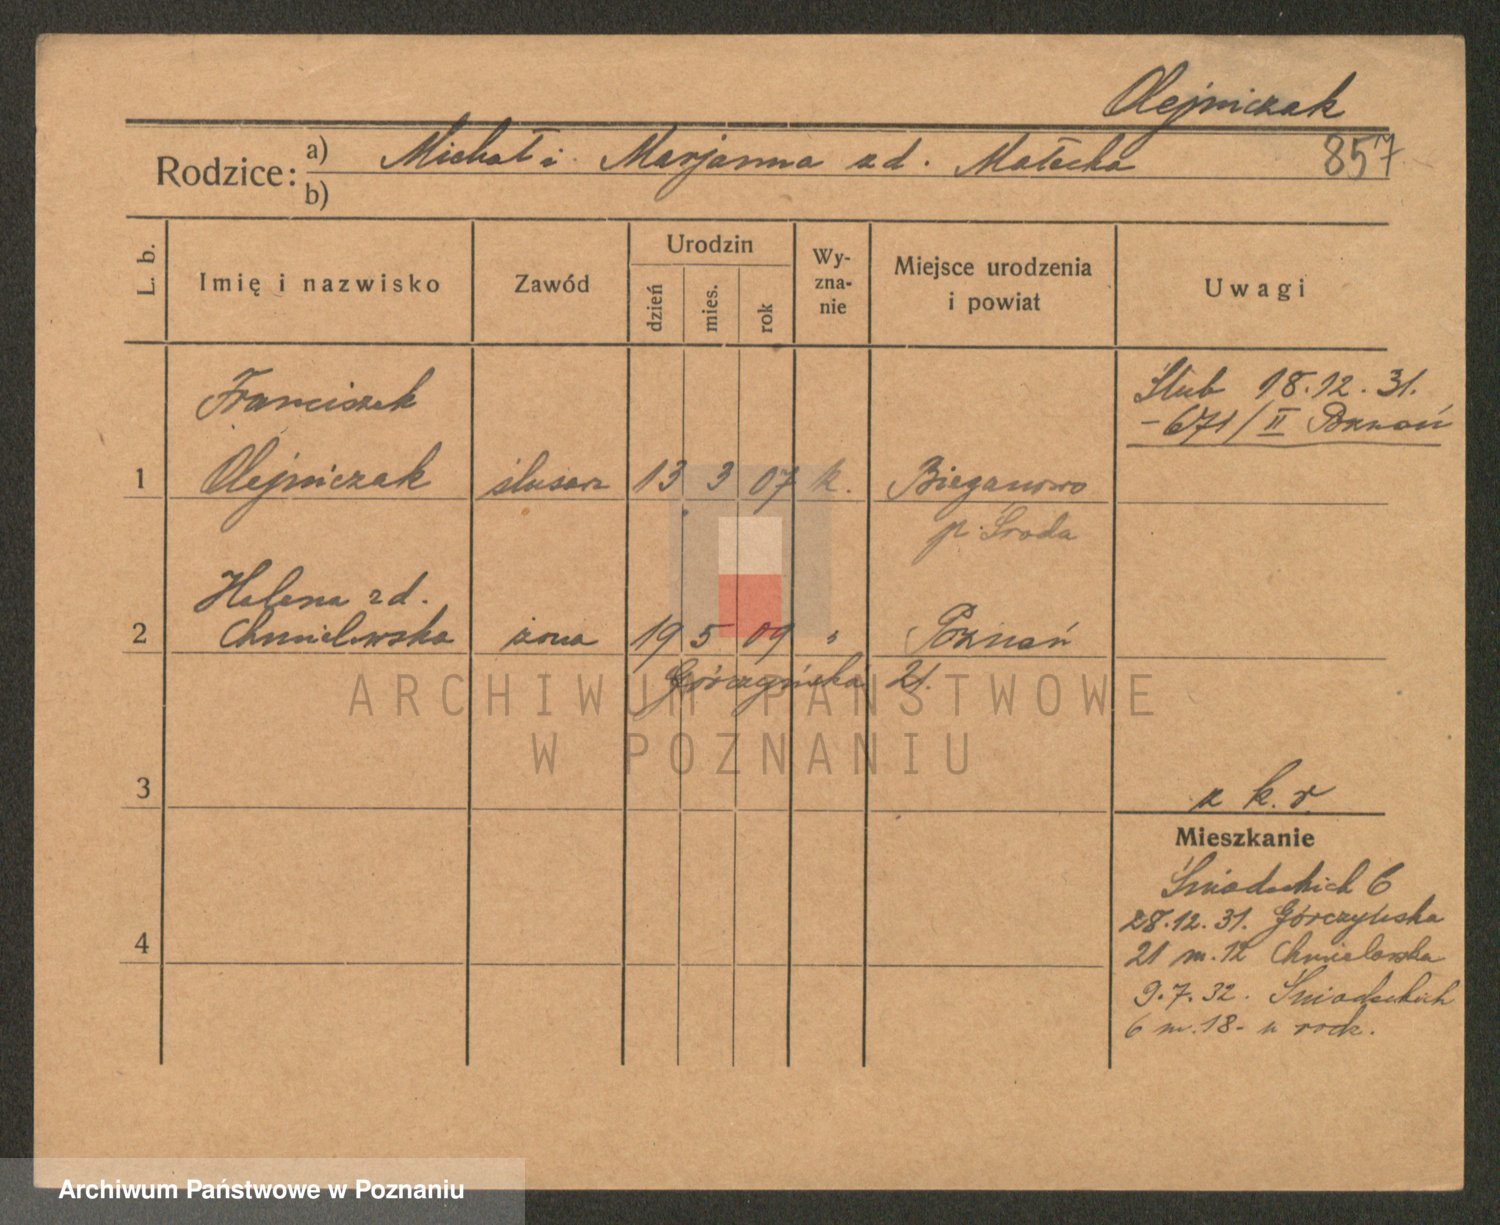 Olejniczak
857
Rodzice: a) Michał i Marjanna zd. Małecka
b)
L. b.
Imię i nazwisko
Zawód
Urodzin
dzień
mies.
rok
Wy-
zna-
nie
Miejsce urodzenia
i powiat
Uwagi
Franciszek
Ślub 18.12.31.
- 671/II Poznań
1 Olejniczak ślusarz 13 3 07 k. Bieganowo
p. Środa
Helena zd.
2 Chmielewska żona 19 5 09 " Poznań
Górczyńska 21.
ARCHIWUM PAŃSTWOWE
W POZNANIU
3
z k. r.
Mieszkanie
Śniadeckich 6
28.12.31. Górczyńska
21 m. 12 Chmielewska
4
9.7.32. Śniadeckich
6 m. 18 - u rodz.
Archiwum Państwowe w Poznaniu